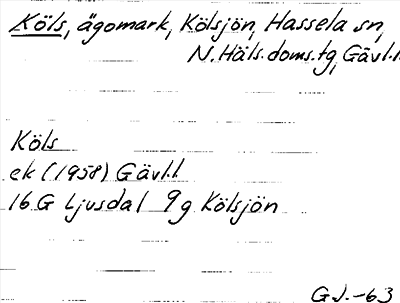 Köls, ägomark, Kölsjön, Hassela sn,
N. Häls. doms.tg, Gävl.l.
Köls
ek (1958) Gävl.l
16 G Ljusdal 9g Kölsjön
G.J.-63